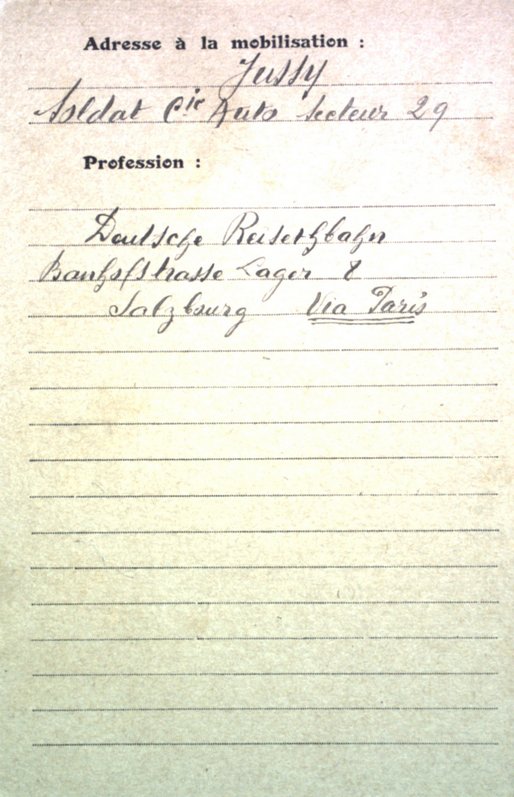 Adresse à la mobilisation :
Jussy
Soldat Cie Auto Secteur 29
Profession :
Deutsche
Lager 8
Salzburg Via Paris